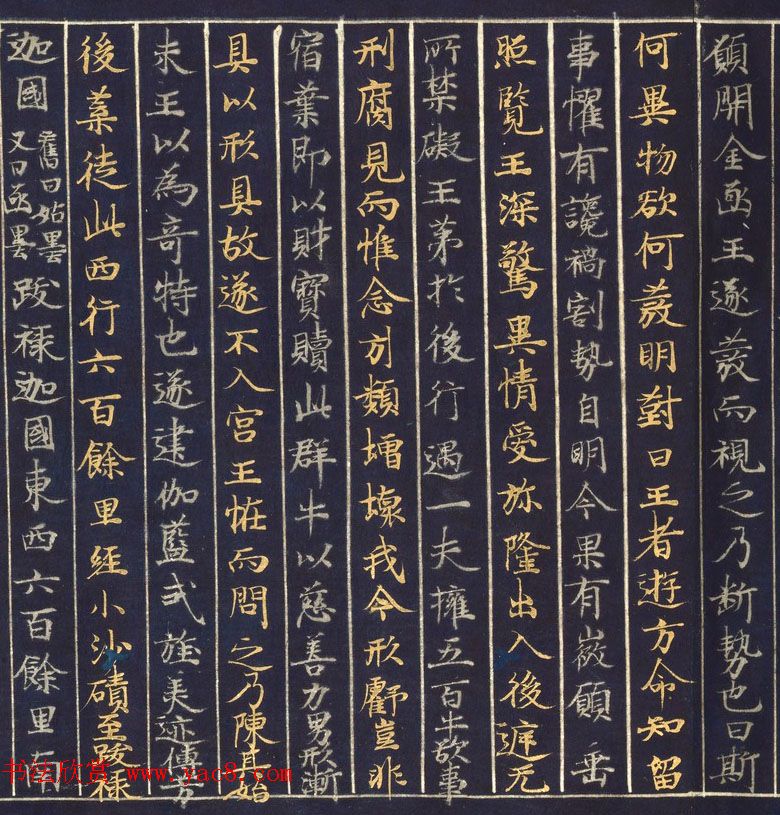 願開金函王遂發而視之乃斷勢也曰斯
何異物欲何發明對曰王者遊方命知留
事懼有讒禍割勢自明今果有嶶願垂
照覽王深驚異情愛弥隆出入後遲无
所禁礙王弟於後行遇一夫擁五百牛欲事
刑腐見而惟念引類增壞我今形虧豈非
宿業即以財寶贖此群牛以慈善力男形漸
具以形具故遂不入宮王恠而問之乃陳其始
末王以為奇特也遂建伽藍式旌美迹傳芳
後葉從此西行六百餘里經小沙磧至跋祿
迦國舊曰姑墨又曰亟墨跋祿迦國東西六百餘里南
书法欣赏 www.yac8.com